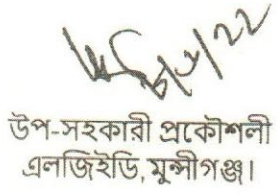 উপ-সহকারী প্রকৌশলী
এলজিইডি, মুন্সীগঞ্জ।